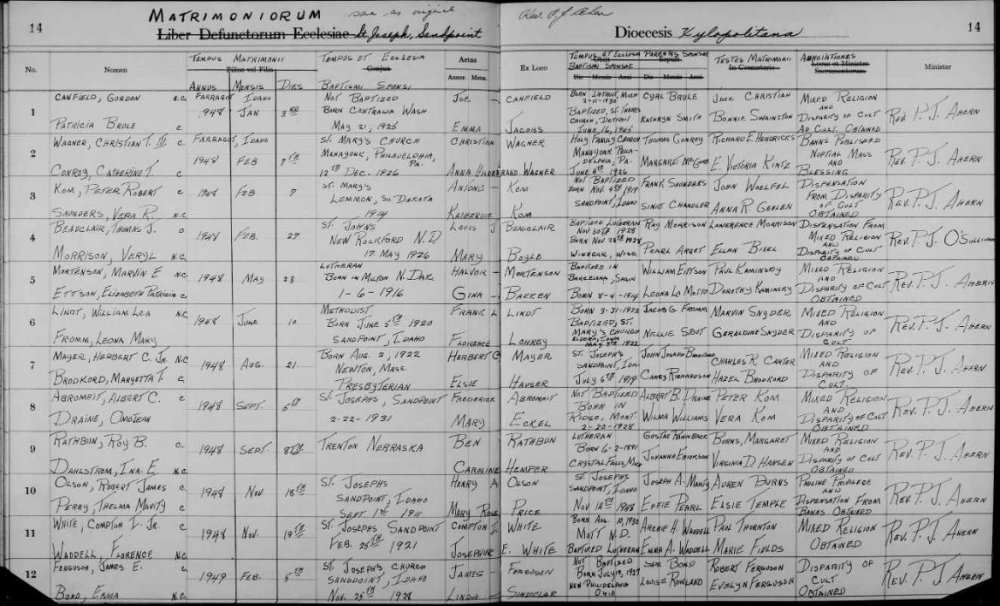 14
MATRIMONIORUM
Liber Defunctorum Ecclesiae St. Joseph, Sandpoint
Dioecesis Xylopolitana
14
No.
Nomen
TEMPUS MATRIMONII
ANNUS MENSIS DIES
TEMPUS ET ECCLESIA
BAPTISMI SPONSI
Aetas
Annor. Mens.
Ex Loco
TEMPUS ET ECCLESIA
BAPTISMI SPONSAE
PARENTES SPONSAE
TESTES MATRIMONII
ANNOTATIONES
Minister
1
CANFIELD, GORDON N.C.
PATRICIA BRULE C
FARRAGUT IDAHO
1948 JAN 3RD
NOT BAPTIZED
BORN CENTRALIA WASH
MAY 21, 1925
JOE CANFIELD
EMMA JACOBS
BORN DETROIT, MICH
2-11-1930
CHURCH, DETROIT
CYRL BRULE
KATHRYN SMITH
JACK CHRISTIAN
BONNIE SWAINSTON
MIXED RELIGION
AND
DISPARITY OF CULT
OBTAINED
REV. P. J. AHERN
2
WAGNER, CHRISTIAN T. III C.
CONROY, CATHERINE T. C
FARRAGUT, IDAHO
1948 FEB 7TH
ST. MARY'S CHURCH
MANAYUNK, PHILADELPHIA, PA.
12TH DEC. 1926
CHRISTIAN WAGNER
WAGNER
HOLY FAMILY CHURCH
MANAYUNK PHILADELPHIA, PA.
1926
THOMAS CONROY
RICHARD E. HENDRICKS
E. VICTORIA KINTZ
BANNS PUBLISHED
NUPTIAL MASS
AND
BLESSING
REV. P. J. AHERN
3
KOM, PETER ROBERT C
SAUNDERS, VERA R. N.C.
1948 FEB 7
ST. MARY'S
LEMMON, SO. DAKOTA
1914
KOM
KOM
NOT BAPTIZED
SANDPOINT, IDAHO
FRANK SAUNDERS
SINIE CHANDLER
JOHN WOELFEL
ANNA R. GEHLEN
DISPENSATION
FROM DISPARITY
OF CULT
OBTAINED
REV. P. J. AHERN
4
BEAUCLAIR, THOMAS J. C
MORRISON, VERYL N.C.
1948 FEB. 27
ST. JOHNS
NEW ROCKFORD N. D
17 MAY 1926
LOUIS J BEAUCLAIR
MARY BOYLE
BAPTIZED LUTHERAN
WINEGAR, WISC.
RAY MORRISON
PEARL
LAWERENCE MORRISON
ELLEN BIXEL
DISPENSATION FROM
MIXED RELIGION
AND
DISPARITY OF CULT
OBTAINED
REV. P. J. O'SULLIVAN
5
MORTENSON, MARVIN E N.C
ETTSON, ELIZABETH PATRICIA C
1948 MAY 23
LUTHERAN
BORN IN MILTON N. DAK.
1-6-1916
HALVOR MORTENSON
GINA BAKKEN
BAPTIZED IN
BORN 8-4-1914
WILLIAM ETTSON
LEONA LA MOTTO
PAUL KAMINSKY
DOROTHY KAMINSKY
MIXED RELIGION
AND
DISPARITY OF CULT
OBTAINED
REV. P. J. AHERN
6
LINDT, WILLIAM LEA N.C
FROMM, LEONA MARY
1948 JUNE 10
METHODIST
BORN JUNE 5TH 1920
SANDPOINT, IDAHO
FRANK L LINDT
FLORENCE
BORN 3-31-1922
BAPTIZED, ST.
MARY'S CHURCH
JACOB G FROMM
NELLIE SBUT
MARVIN SNYDER
GERALDINE SNYDER
MIXED RELIGION
AND
DISPARITY OF
CULT
REV. P. J. AHERN
7
MAYER, HERBERT C. JR. N.C
BRODKORD, MARYETTA T. C
1948 AUG. 21
BORN AUG. 2, 1922
NEWTON, MASS
PRESBYTERIAN
HERBERT C MAYER
ELSIE HAUSER
ST. JOSEPHS
SANDPOINT, IDA
JULY 6TH 1919
JOHN JOSEPH BRODKORD
CARRY RICHARDSON
CHARLES R. CARTER
HAZEL BRODKORD
MIXED RELIGION
AND
DISPARITY OF
CULT
REV. P. J. AHERN
8
ABROMEIT, ALBERT C. C
DRAINE, OMOJEAN
1948 SEPT. 5TH
ST. JOSEPHS, SANDPOINT
2-22-1931
FREDERICK ABROMEIT
MARY ECKEL
NOT BAPTIZED
BORN IN
RIDGE, MONT
2-20-1928
ALBERT B. DRAINE
WILMA WILLIAMS
PETER KOM
VERA KOM
MIXED RELIGION
AND
DISPARITY OF CULT
OBTAINED
REV. P. J. AHERN
9
RATHBUN, ROY B. C
DAHLSTROM, INA E N.C.
1948 SEPT.
TRENTON NEBRASKA
BEN RATHBUN
CAROLINE HEMPER
LUTHERAN
BORN 6-2-1891
CRYSTAL FALLS, MICH
JOHANNA ERICKSON
BURNS, MARGARET
VIRGINIA D. HANSEN
MIXED RELIGION
AND
DISPARITY OF CULT
OBTAINED
REV. P. J. AHERN
10
OLSON, ROBERT JAMES C
PERRY, THELMA C
1948 NOV 18TH
ST. JOSEPHS
SANDPOINT, IDAHO
SEPT 1ST
HENRY A OLSON
MARY ROSE PRICE
ST. JOSEPHS
SANDPOINT, IDAHO
NOV 18TH 1948
JOSEPH A.
EFFIE PEARL
ADREN BURNS
ELSIE TEMPLE
PAULINE PRIVILEGE
AND
DISPENSATION FROM
BANNS OBTAINED
REV. P. J. AHERN
11
WHITE, COMPTON I. JR. C
WADDELL, FLORENCE N.C.
1948 NOV. 19TH
ST. JOSEPHS SANDPOINT
FEB. 25TH 1921
COMPTON I WHITE
JOSEPHINE E. WHITE
BORN AUG. 10, 1930
MOTT N.D.
BAPTIZED LUTHERAN
ARCHIE H. WADDELL
EMMA A. WADDELL
PAUL THORNTON
MARIE FIELDS
MIXED RELIGION
OBTAINED
REV. P. J. AHERN
12
FERGUSON, JAMES E. C
BOND, EMMA N.C.
1949 FEB. 5TH
ST. JOSEPH'S CHURCH
SANDPOINT, IDAHO
NOV. 25TH 1928
JAMES FERGUSON
LINDA SINDELAR
NOT BAPTIZED
BORN JULY 19, 1927
NEW PHILADELPHIA
OHIO
SAM BOND
LOUISE ROWLAND
ROBERT FERGUSON
EVELYN FERGUSON
DISPARITY OF
CULT
OBTAINED
REV. P. J. AHERN